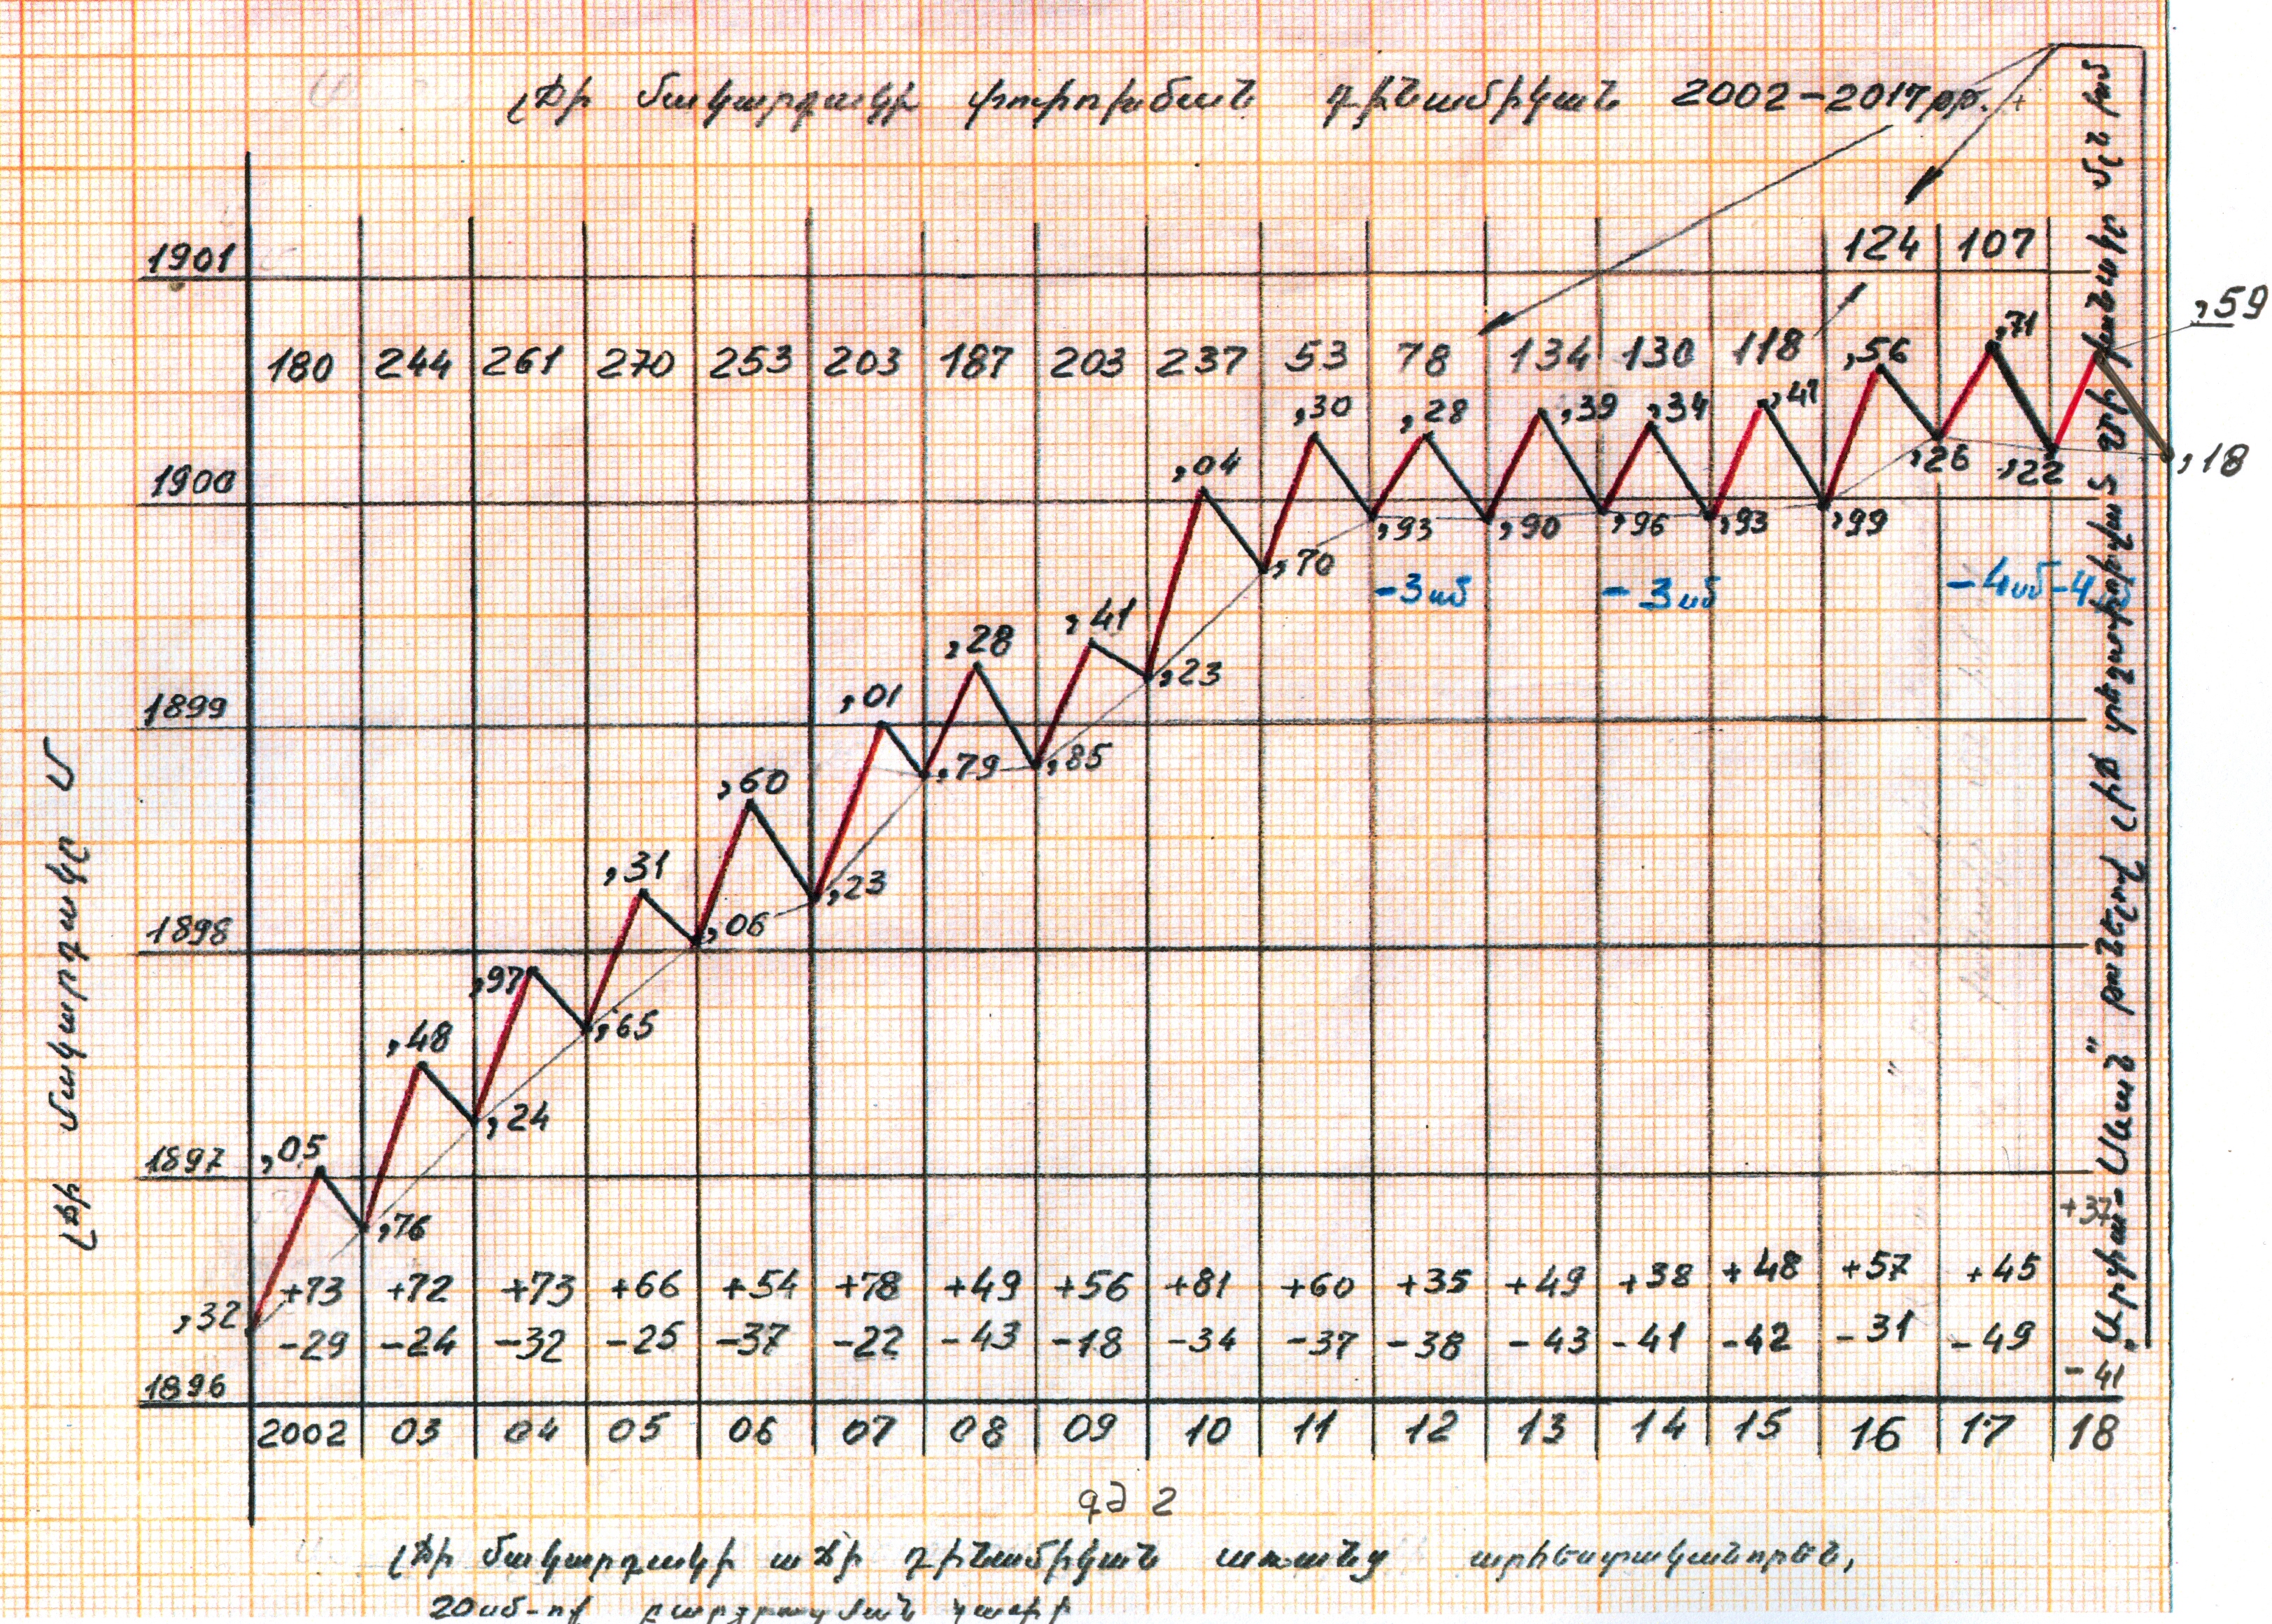 լճի մակարդակի փոփոխման դինամիկան 2002-2017թթ.
124 107
1901
,59
180 244 261 270 253 203 187 203 237 53 78 134 130 118
,56 ,71
,30 ,28 ,39 ,34 ,41
,04
,26 ,22 ,18
1900
,93 ,90 ,96 ,93 ,99
,70
-3սմ -3սմ -4սմ -4սմ
,41
,28
,23
,01
1899
,79 ,85
,60
,31 ,23
,06
1898
,97
,65
,48
,24
,05
1897
,76
+73 +72 +73 +66 +54 +78 +49 +56 +81 +60 +35 +49 +38 +48 +57 +45 +37
,32
-29 -24 -32 -25 -37 -22 -43 -18 -34 -37 -38 -43 -41 -42 -31 -49 -41
1896
2002 03 04 05 06 07 08 09 10 11 12 13 14 15 16 17 18
Լճի մակարդակը մ
„Արփա-Սևան" թունելով լիճ տեղափոխված ջրի քանակը մլն խմ
գծ 2
լճի մակարդակի աճի դինամիկան առանց արհեստականորեն,
20սմ-ով բարձրացման